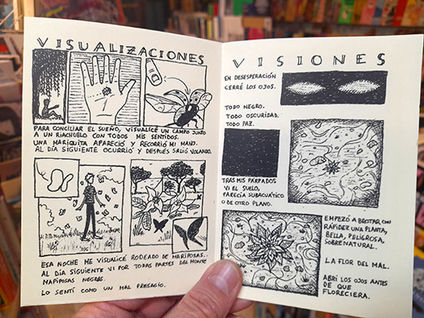 VISUALIZACIONES
PARA CONCILIAR EL SUEÑO, VISUALICÉ UN CAMPO JUNTO
A UN RIACHUELO CON TODOS MIS SENTIDOS.
UNA MARIQUITA APARECIÓ Y RECORRIÓ MI MANO.
AL DÍA SIGUIENTE OCURRIÓ Y DESPUÉS SALIÓ VOLANDO.
ESA NOCHE ME VISUALICÉ RODEADO DE MARIPOSAS.
AL DÍA SIGUIENTE VI POR TODAS PARTES DEL MONTE
MARIPOSAS NEGRAS.
LO SENTÍ COMO UN MAL PRESAGIO.
VISIONES
EN DESESPERACIÓN
CERRÉ LOS OJOS.
TODO NEGRO.
TODO OSCURIDAD.
TODO PAZ.
TRAS MIS PÁRPADOS
VI EL SUELO,
PARECÍA SUBACUÁTICO
O DE OTRO PLANO.
EMPEZÓ A BROTAR, CON
RÁPIDEZ UNA PLANTA,
BELLA, PELIGROSA,
SOBRENATURAL.
LA FLOR DEL MAL.
ABRÍ LOS OJOS ANTES
DE QUE
FLORECIERA.